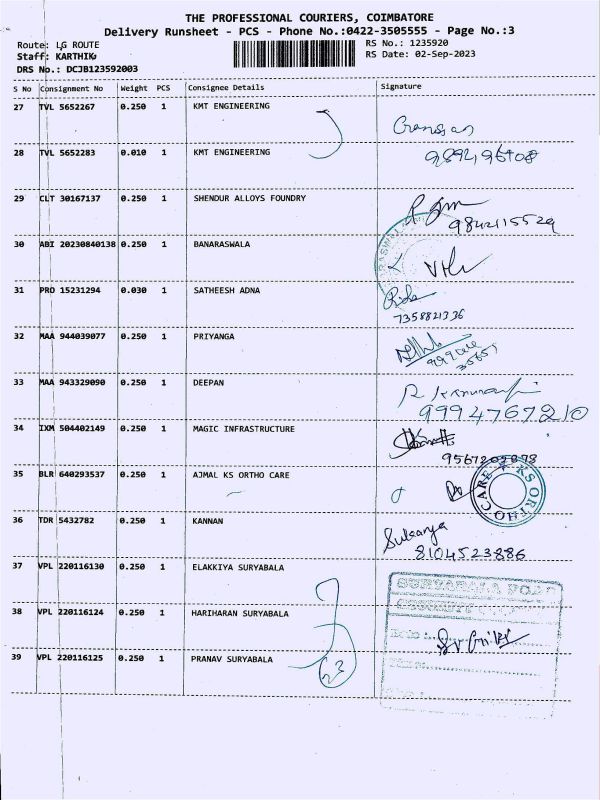 THE PROFESSIONAL COURIERS, COIMBATORE
Delivery Runsheet - PCS - Phone No.:0422-3505555 - Page No.:3
Route: LG ROUTE RS No.: 1235920
Staff: KARTHIK RS Date: 02-Sep-2023
DRS No.: DCJB123592003
S No Consignment No Weight PCS Consignee Details Signature
27 TVL 5652267 0.250 1 KMT ENGINEERING
28 TVL 5652283 0.010 1 KMT ENGINEERING
29 CLT 30167137 0.250 1 SHENDUR ALLOYS FOUNDRY
9842115529
30 ABI 20230840138 0.250 1 BANARASWALA
31 PRO 15231294 0.030 1 SATHEESH ADNA
7358821336
32 MAA 944039077 0.250 1 PRIYANGA
33 MAA 943329090 0.250 1 DEEPAN
9994767210
34 IXM 504402149 0.250 1 MAGIC INFRASTRUCTURE
35 BLR 640293537 0.250 1 AJMAL KS ORTHO CARE
KS ORTHO CARE
36 TDR 5432782 0.250 1 KANNAN Sukanya
8104523886
37 VPL 220116130 0.250 1 ELAKKIYA SURYABALA
38 VPL 220116124 0.250 1 HARIHARAN SURYABALA
39 VPL 220116125 0.250 1 PRANAV SURYABALA
23